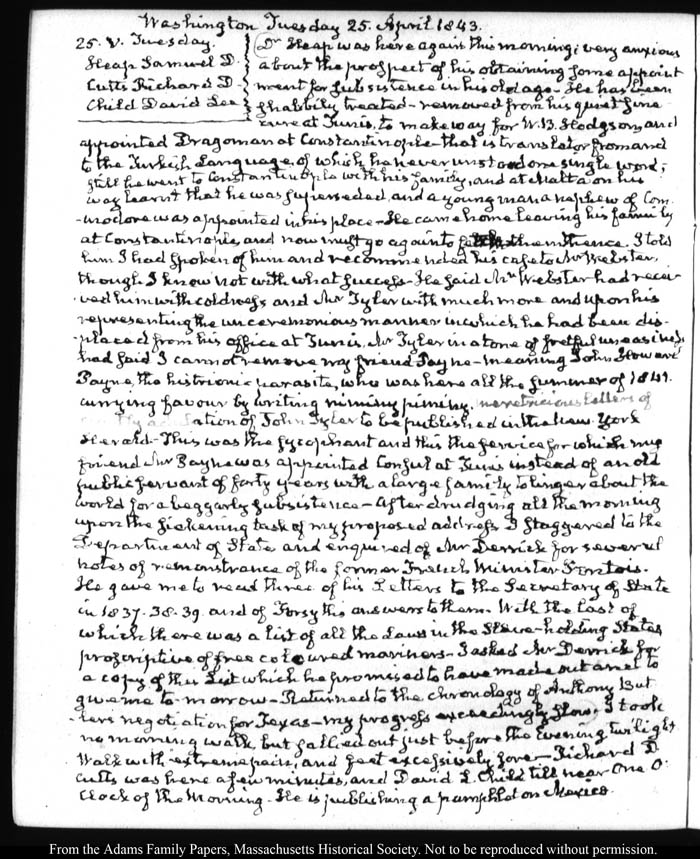 Washington Tuesday 25. April 1843.
25. V. Tuesday.
Heap Samuel D.
Cutts Richard D
Child David Lee
Dr Heap was here again this morning; very anxious
about the prospect of his obtaining some appoint
ment for subsistence in his old age - He has been
shabbily treated - removed from his quiet sine
cure at Tunis, to make way for W. B. Hodgson, and
appointed Dragoman at Constantinople that is translator from and
to the Turkish Language, of which he never understood one single word;
still he went to Constantinople with his family, and at Malta on his
way learnt that he was superseded, and a young man a nephew of Com
-modore was appointed in his place - He came home leaving his family
at Constantinople, and now must go again to fetch them thence. I told
him I had spoken of him and recommended his case to Mr Webster,
though I know not with what success - He said Mr Webster had recei
ved him with coldness and Mr Tyler with much more and upon his
representing the unceremonious manner in which he had been dis-
placed from his office at Tunis, Mr Tyler in a tone of fretful uneasiness
had said I cannot remove my friend Payne - meaning John Howard
Payne, the histrionic parasite, who was here all the summer of 1841.
currying favour by writing niminy piminy, meretricious letters of
adulation of John Tyler to be published in the New York
Herald - This was the sycophant and this the service for which my
friend Mr Payne was appointed Consul at Tunis instead of an old
public servant of forty years with a large family to linger about the
world for a beggarly subsistence - After drudging all the morning
upon the sickening task of my proposed address I staggered to the
Department of State and enquired of Mr Derrick for several
notes of remonstrance of the former French Minister Pontois.
He gave me to read three of his Letters to the Secretary of State
in 1837. 38. 39. and of Forsyth's answers to them. With the last of
which there was a list of all the Laws in the Slave-holding States
proscriptive of free coloured mariners - I asked Mr Derrick for
a copy of this List which he promised to have made out and to
give me to-morrow - Returned to the chronology of Anthony But
-lers negotiation for Texas - my progress exceedingly slow - I took
no morning walk, but sallied out just before the Evening twilight
Walk with extreme pain, and feet excessively sore - Richard D
Cutts was here a few minutes, and David L. Child till near One O'
Clock of the Morning - He is publishing a pamphlet on Mexico.
From the Adams Family Papers, Massachusetts Historical Society. Not to be reproduced without permission.